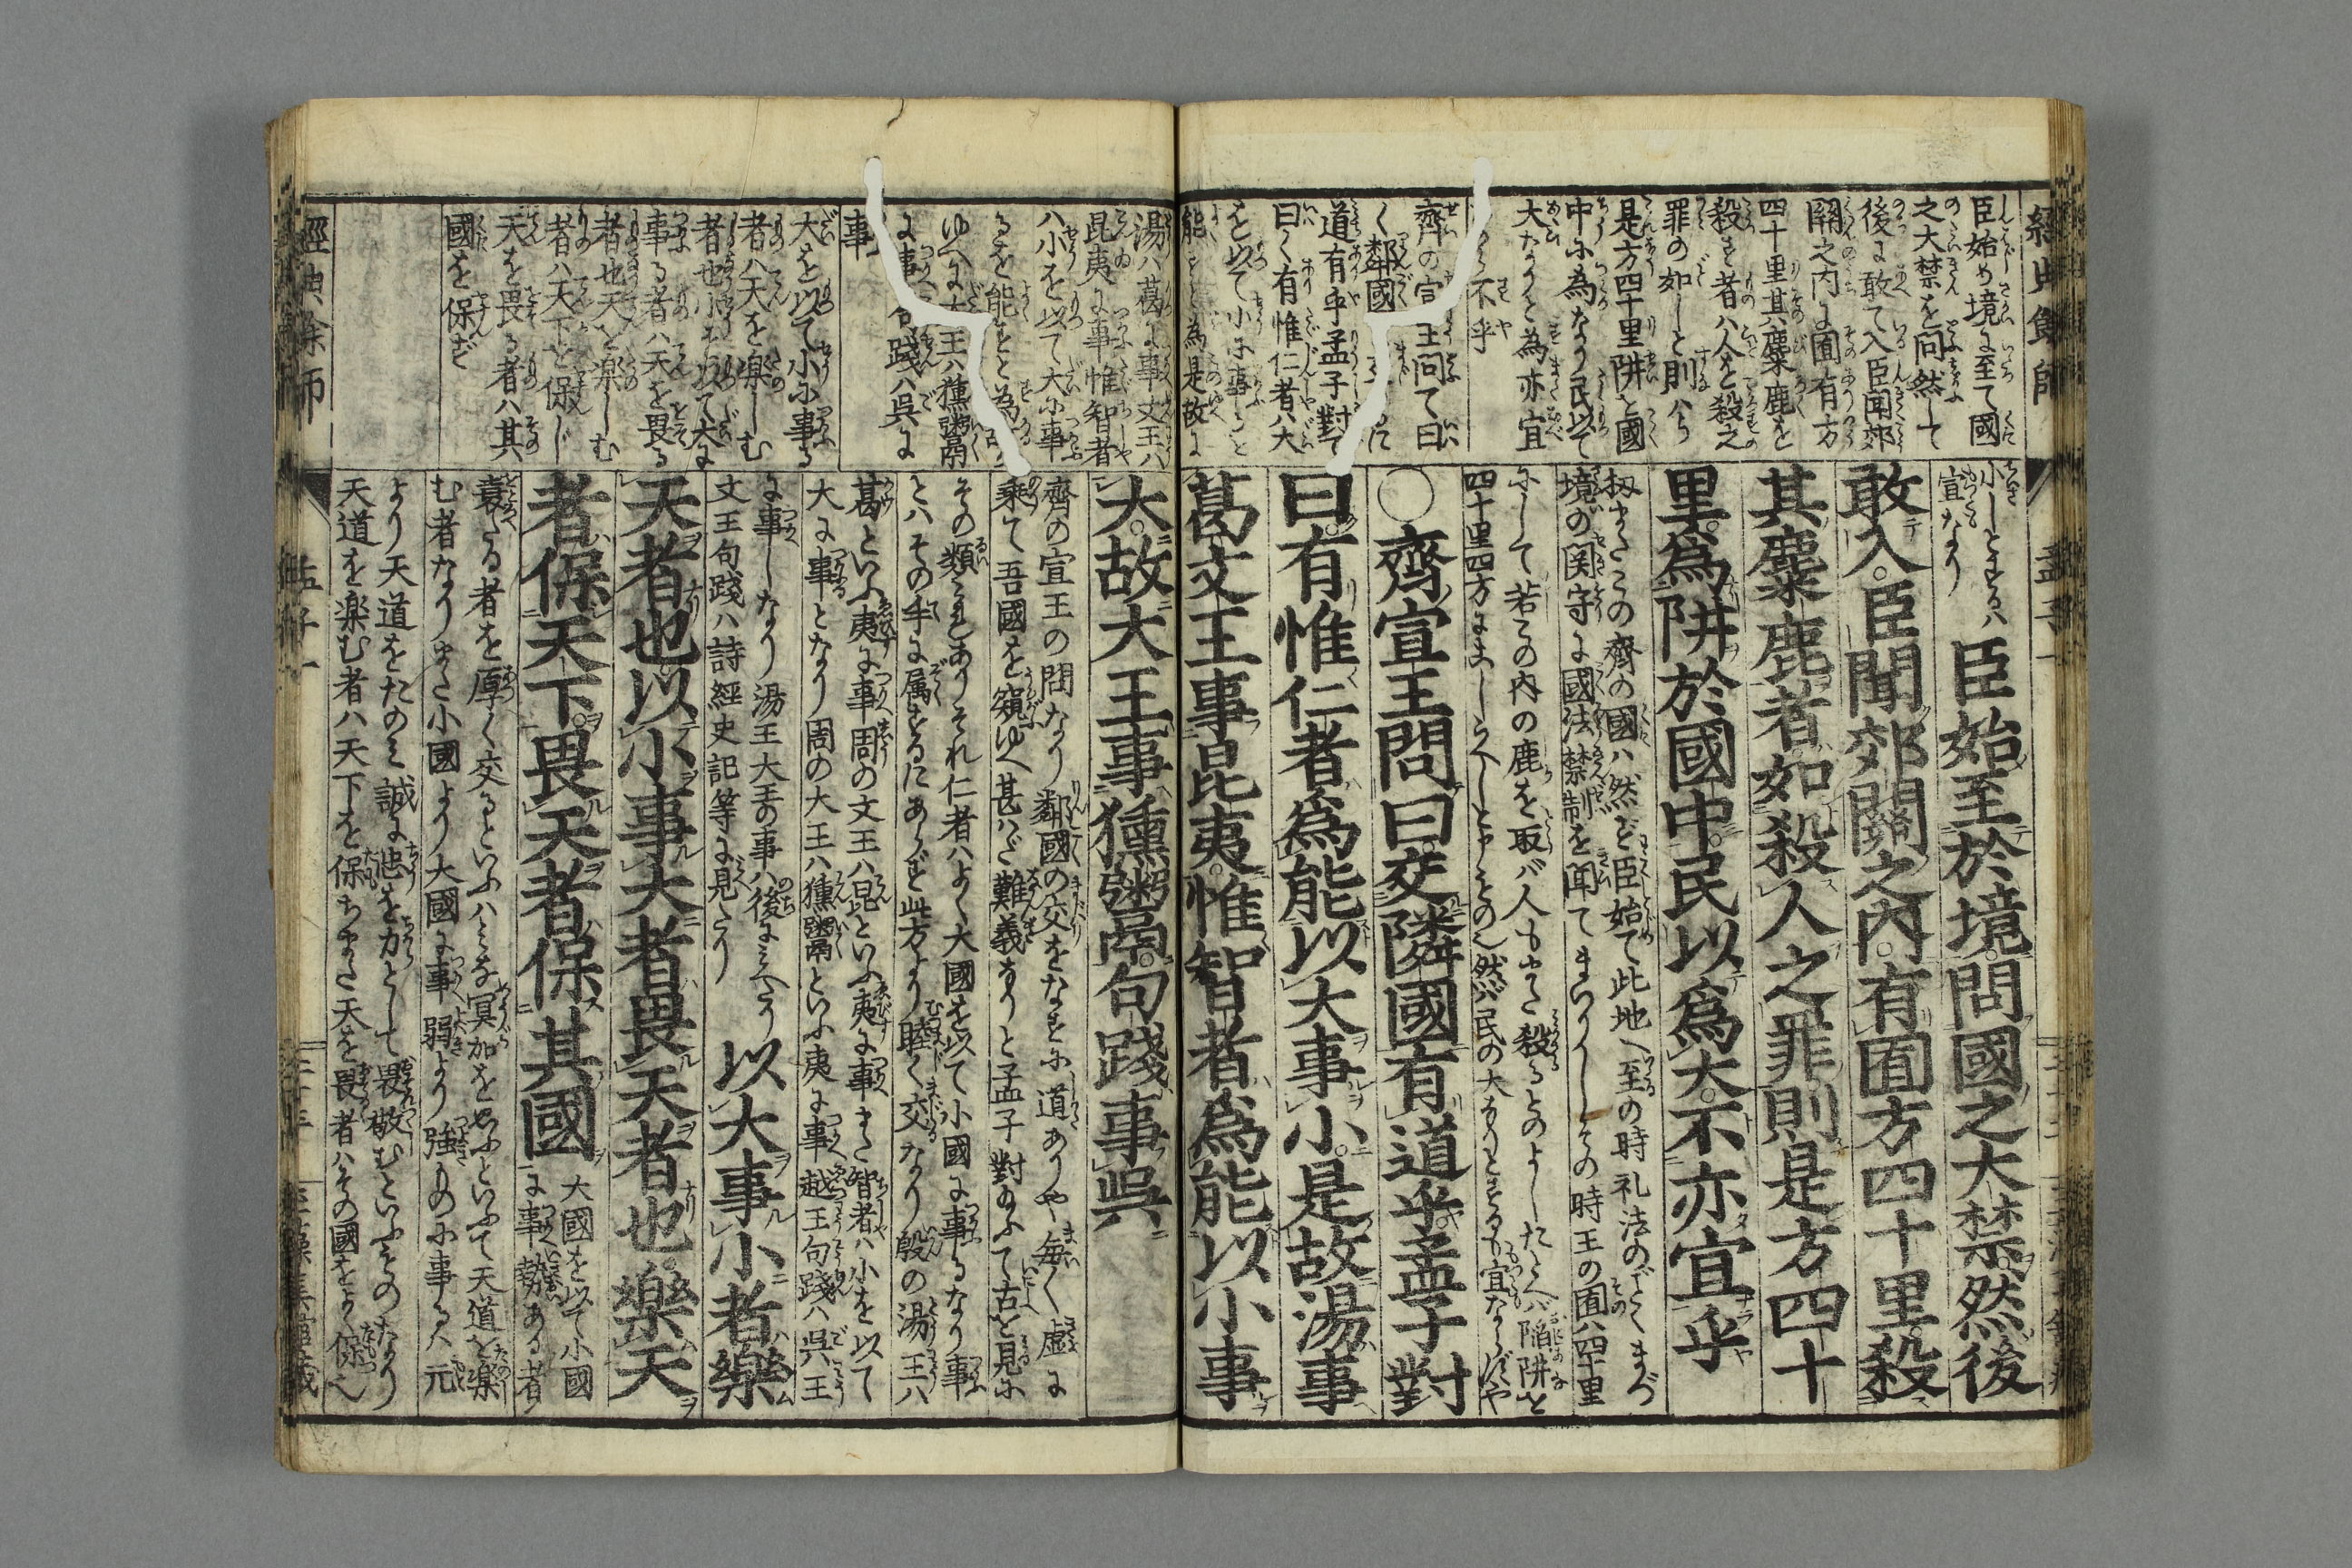 經典餘師
臣始め境に至て國
之大禁を問然して
後に敢て入臣聞郊
關之内に囿有方
四十里其麋鹿を
殺す者ハ人を殺之
罪の如しと則ハ
是方四十里阱を國
中に為なり民以て
大なりと為亦宜
不乎
齊の宣王問て曰
く鄰國
道有乎孟子對て
曰く有惟仁者ハ大
を以て小に事ると
能ことを為是故に
孟子一
小しとするハ
宜なり
臣始至於境問國之大禁然後
敢入臣聞郊關之內有囿方四十里殺
其麋鹿者如殺人之罪則是方四十
里爲阱於國中民以爲大不亦宜乎
扨またこの齊の國ハ然ず臣始て此地へ至の時礼法のごとくまづ
境の関守に國法禁制を聞てまゐりしその時王の囿ハ四十里
にして若この内の鹿を取バ人もまた殺るとのよしたとへバ陥阱を
四十里四方にましらへしと
然バ民の大なりとするも宜ならずや
○齊宣王問曰交隣國有道乎孟子對
曰有惟仁者爲能以大事小是故湯事
葛文王事昆夷惟智者爲能以小事
湯ハ葛に事文王ハ
昆夷に事惟智者
ハ小を以て大に事
るを能ことを為
ゆへに大王ハ獯鬻
に事句踐ハ呉に
事
大を以て小に事る
者ハ天を楽しむ
者也小を以て大に
事る者ハ天を畏る
者也天を楽しむ
者ハ天下を保じ
天を畏る者ハ其
國を保ず
大故大王事獯鬻句踐事吳
齊の宣王の問なり鄰國の交をなすに道ありや毎く虚に
乗て吾國を窺ゆへ甚ハだ難義なりと孟子對て古を見に
その類これありそれ仁者ハよく大國を以て小國に事るなり事
とハその手に属するにあらず此方より睦く交なり殷の湯王ハ
葛といふ夷に事周の文王ハ昆といふ夷に事また智者ハ小を以て
大に事となり周の大王ハ獯鬻といふ夷に事越王句踐ハ呉王
に事しなり湯王大王の事ハ後にみへたり
文王句踐ハ詩經史記等に見へたり
以大事小者樂
天者也以小事大者畏天者也樂天
者保天下畏天者保其國
大國を以て小國
に事勢ある者
衰たる者を厚く交るといふハみな冥加を思ふといふて天道を楽
む者なりまた小國より大國に事弱より強ものに事るハ元
より天道をたのミ誠に忠を力として畏敬むといふものなり
天道を楽む者ハ天下を保ちまた天を畏者ハその國をよく保べし
經典餘師
孟子一